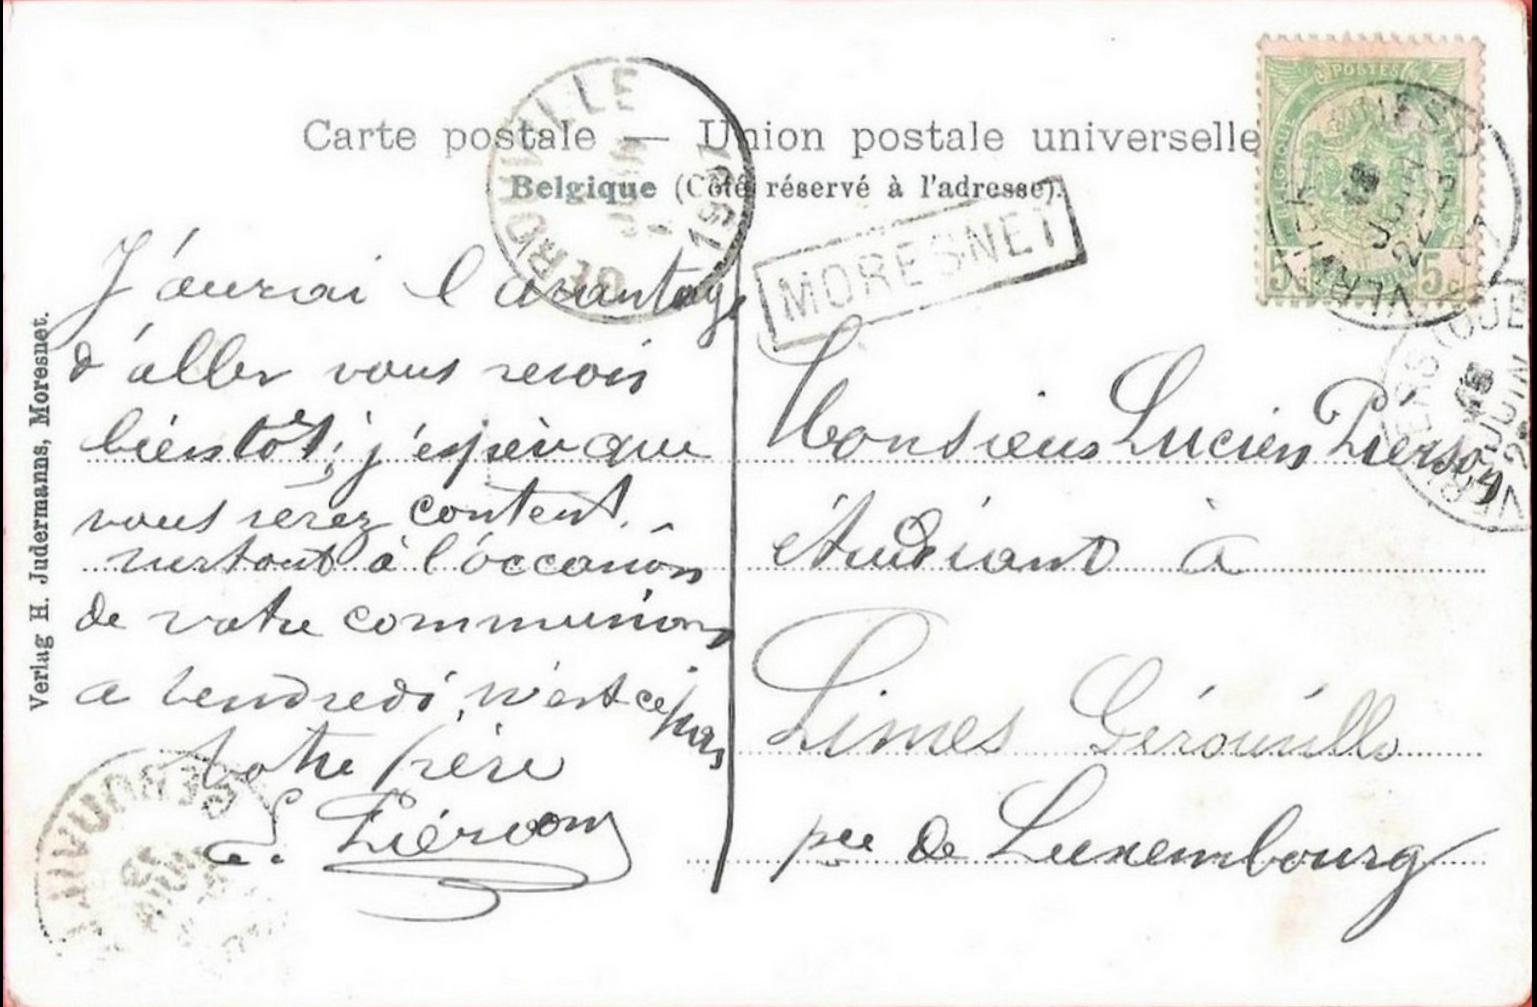 Carte postale — Union postale universelle
Belgique (Côté réservé à l'adresse).
GEROUVILLE
1907
MORESNET
POSTES
BELGIQUE
5 5
VERVIERS (OUEST)
JUIN
22
07
VERVIERS (OUE
JUIN
J'aurai l'avantage
d'aller vous revoir
bientôt; j'espère que
vous serez content,
surtout à l'occasion
de votre communion
a vendredi, n'est ce pas
Votre frère
E. Piérson
Monsieur Lucien Pierson
étudiant à
Limes Gérouville
pce de Luxembourg
Verlag H. Judermanns, Moresnet.
GEROUVILLE